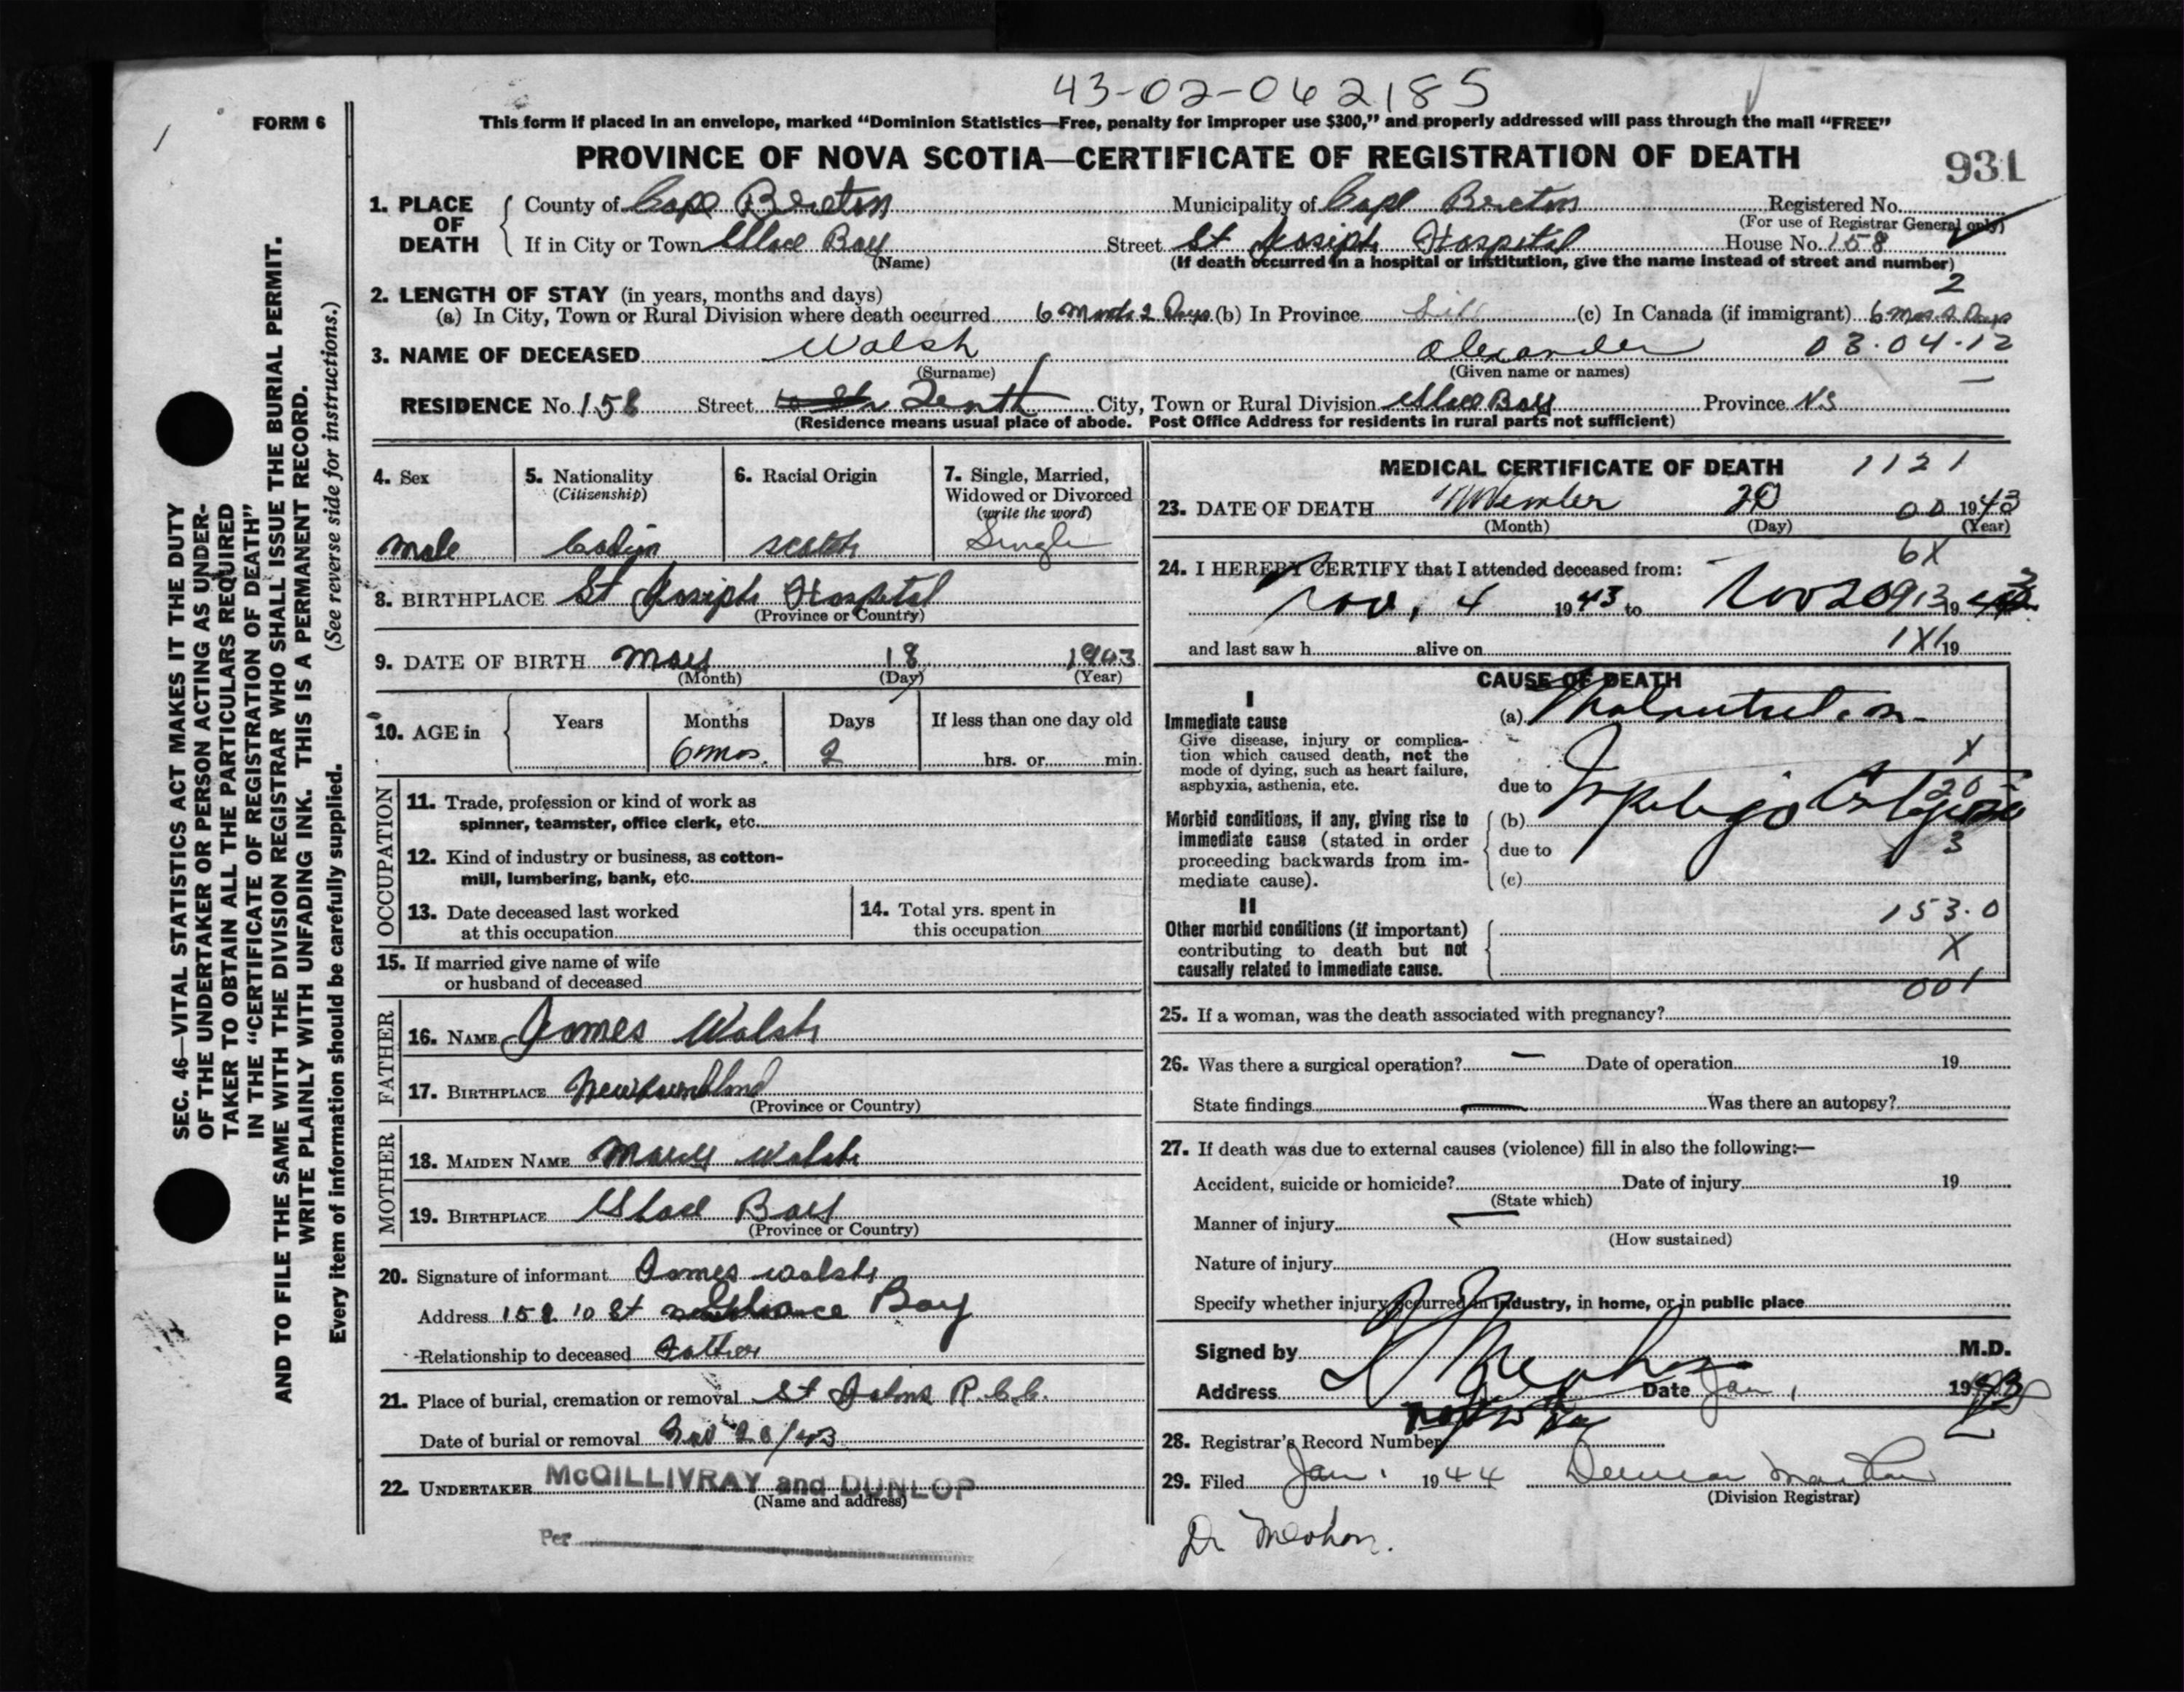 43-02-062185
FORM 6
This form if placed in an envelope, marked "Dominion Statistics—Free, penalty for improper use $300," and properly addressed will pass through the mail "FREE"
PROVINCE OF NOVA SCOTIA—CERTIFICATE OF REGISTRATION OF DEATH
931
1. PLACE OF DEATH
County of Cape Breton Municipality of Cape Breton Registered No.
(For use of Registrar General only)
If in City or Town Glace Bay Street St Josiph Hospital House No. 158
(Name) (If death occurred in a hospital or institution, give the name instead of street and number)
2
2. LENGTH OF STAY (in years, months and days)
(a) In City, Town or Rural Division where death occurred 6 Months 2 Days (b) In Province (c) In Canada (if immigrant) 6 Mos. 2 Days
3. NAME OF DECEASED Walsh Alexander 03.04.12
(Surname) (Given name or names)
RESIDENCE No. 158 Street Tenth City, Town or Rural Division Glace Bay Province NS
(Residence means usual place of abode. Post Office Address for residents in rural parts not sufficient)
4. Sex 5. Nationality 6. Racial Origin 7. Single, Married,
(Citizenship) Widowed or Divorced
(write the word)
male scotch Single
8. BIRTHPLACE St Josiph Hospital
(Province or Country)
9. DATE OF BIRTH May 18 1943
(Month) (Day) (Year)
10. AGE in Years Months Days If less than one day old
6 mos. 2 hrs. or min.
OCCUPATION
11. Trade, profession or kind of work as
spinner, teamster, office clerk, etc.
12. Kind of industry or business, as cotton-
mill, lumbering, bank, etc.
13. Date deceased last worked
at this occupation
14. Total yrs. spent in
this occupation
15. If married give name of wife
or husband of deceased
FATHER
16. NAME James Walsh
17. BIRTHPLACE Newfoundland
(Province or Country)
MOTHER
18. MAIDEN NAME Mary Walsh
19. BIRTHPLACE Glace Bay
(Province or Country)
20. Signature of informant James Walsh
Address 158 10 St Glance Bay
Relationship to deceased Father
21. Place of burial, cremation or removal St Johns R.C.C.
Date of burial or removal Nov 20/43
22. UNDERTAKER McGILLIVRAY and DUNLOP
(Name and address)
Per
MEDICAL CERTIFICATE OF DEATH 1121
23. DATE OF DEATH November 20 00 1943
(Month) (Day) (Year)
6X
24. I HEREBY CERTIFY that I attended deceased from:
Nov. 4 1943 to Nov 20 19
and last saw h alive on 1X1 19
CAUSE OF DEATH
I
Immediate cause
Give disease, injury or complica-
tion which caused death, not the
mode of dying, such as heart failure,
asphyxia, asthenia, etc.
(a) Malnutrition
X
due to Impetigo
20
Morbid conditions, if any, giving rise to
immediate cause (stated in order
proceeding backwards from im-
mediate cause).
(b)
due to 3
(c)
II
Other morbid conditions (if important)
contributing to death but not
causally related to immediate cause.
153.0
X
001
25. If a woman, was the death associated with pregnancy?
26. Was there a surgical operation? — Date of operation 19
State findings — Was there an autopsy?
27. If death was due to external causes (violence) fill in also the following:—
Accident, suicide or homicide? Date of injury 19
(State which)
Manner of injury
(How sustained)
Nature of injury
Specify whether injury occurred in industry, in home, or in public place
Signed by M.D.
Address Date Jan 1 19
28. Registrar's Record Number
29. Filed Jan. 1944
(Division Registrar)
Dr
SEC. 46—VITAL STATISTICS ACT MAKES IT THE DUTY
OF THE UNDERTAKER OR PERSON ACTING AS UNDER-
TAKER TO OBTAIN ALL THE PARTICULARS REQUIRED
IN THE "CERTIFICATE OF REGISTRATION OF DEATH"
AND TO FILE THE SAME WITH THE DIVISION REGISTRAR WHO SHALL ISSUE THE BURIAL PERMIT.
WRITE PLAINLY WITH UNFADING INK. THIS IS A PERMANENT RECORD.
Every item of information should be carefully supplied. (See reverse side for instructions.)